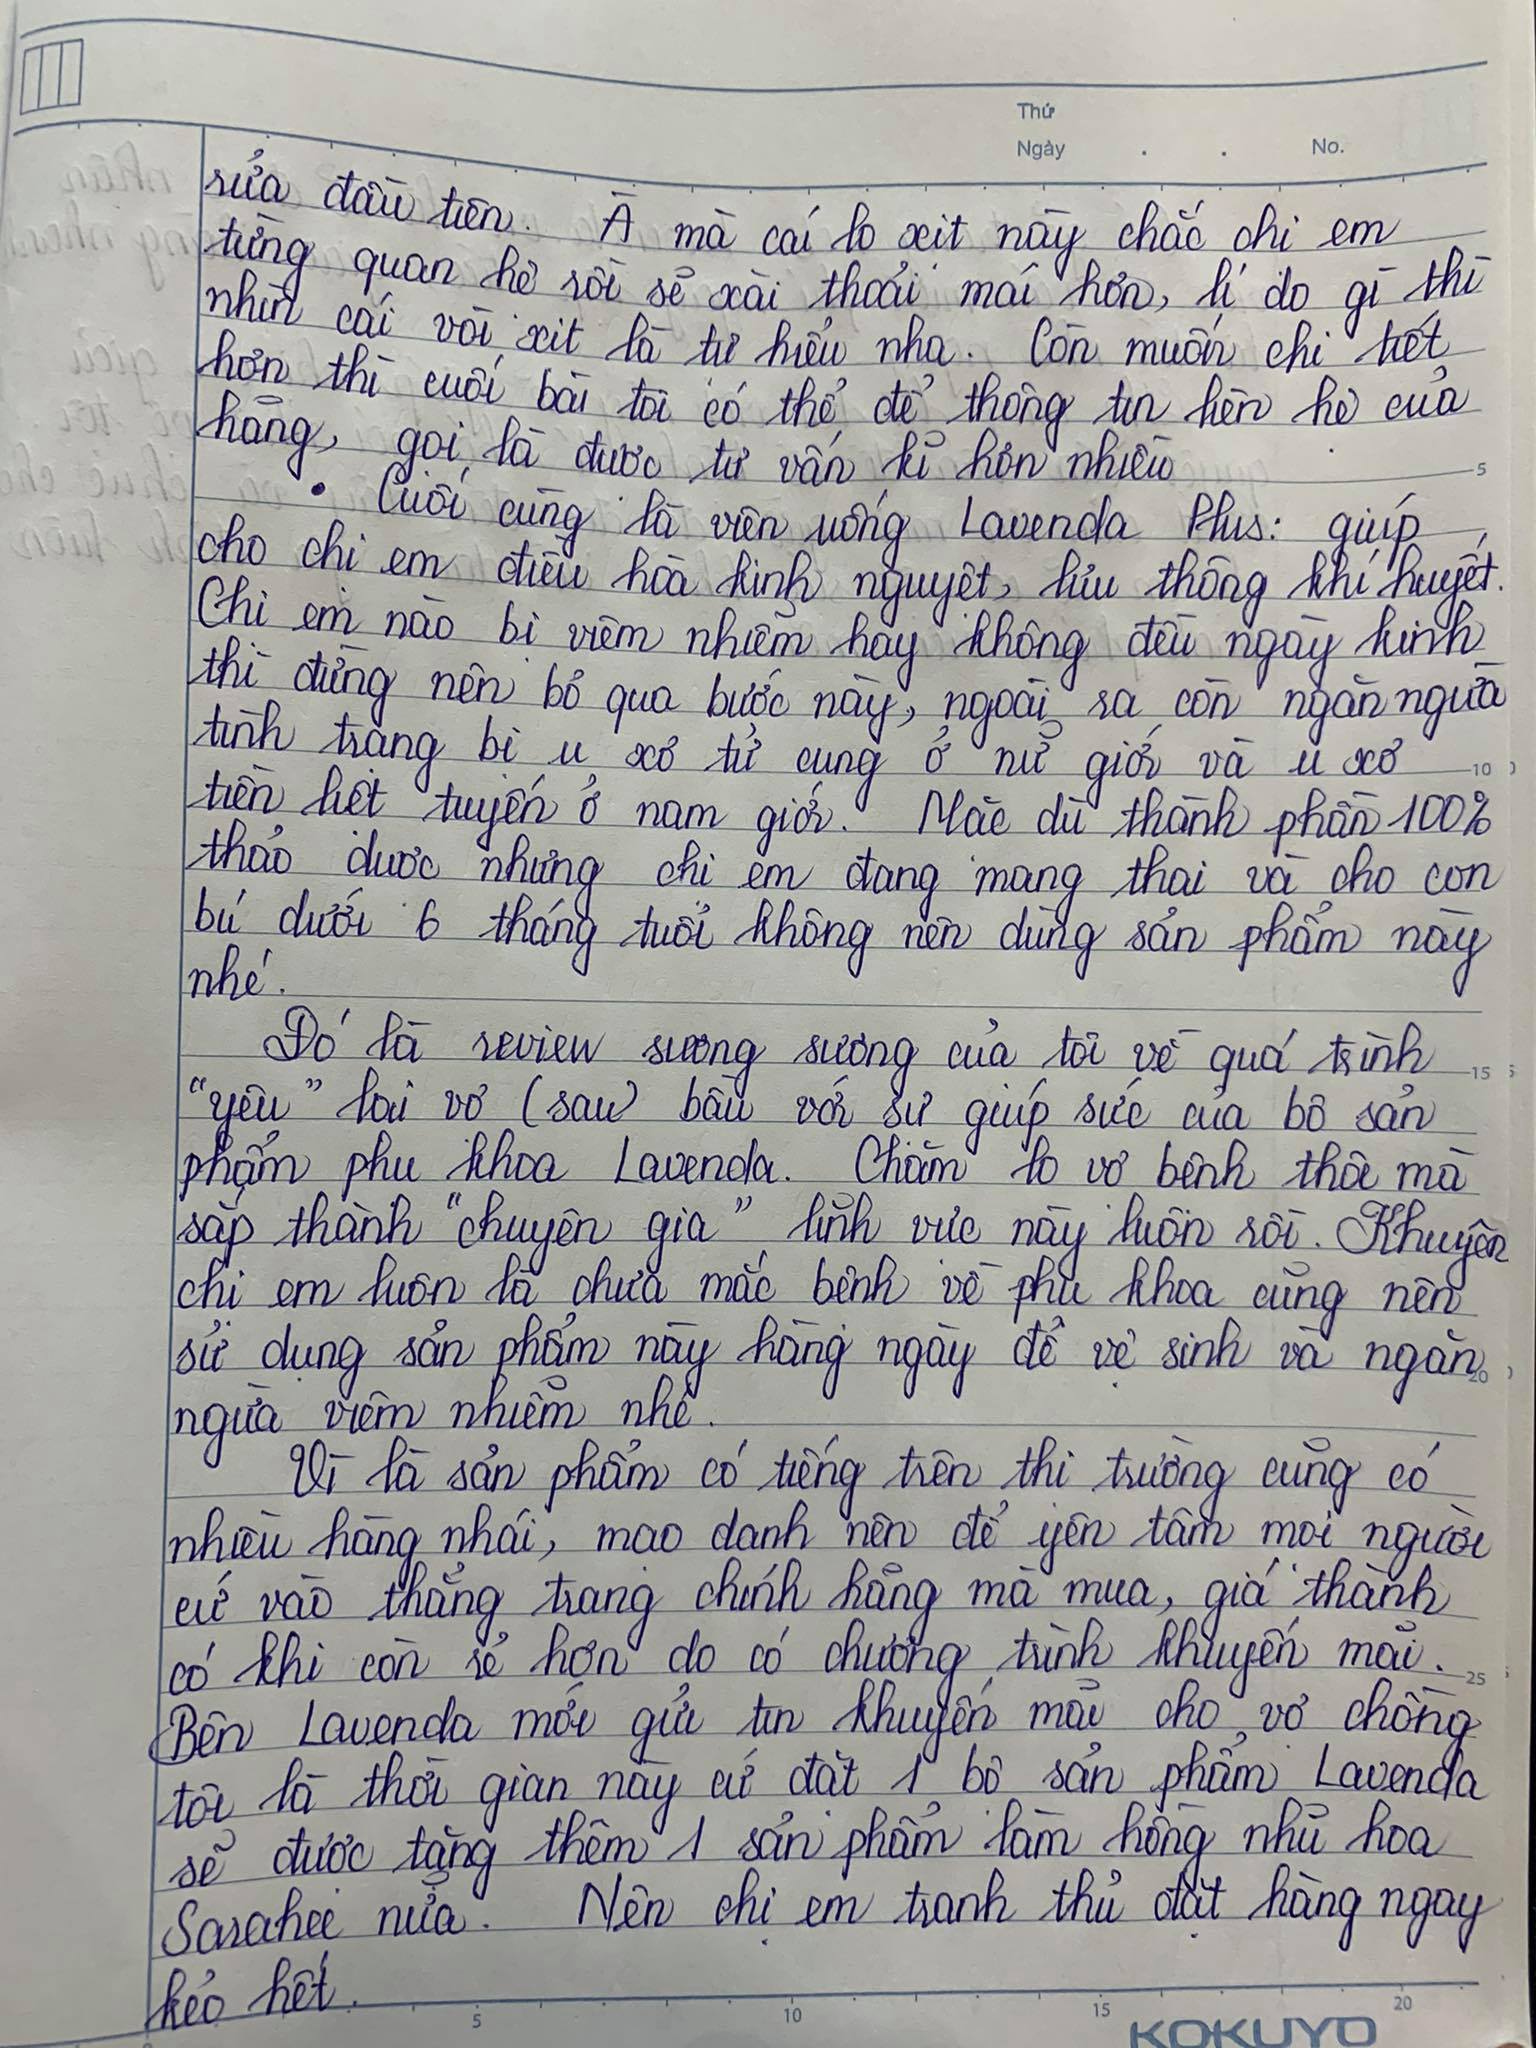 Thứ
Ngày . . No.
rửa đầu tiên. À mà cái lọ xịt này chắc chị em
từng quan hệ rồi sẽ xài thoải mái hơn, lí do gì thì
nhìn cái vòi xịt là tự hiểu nha. Còn muốn chi tiết
hơn thì cuối bài tôi có thể để thông tin liên hệ của
hãng, gọi là được tư vấn kĩ hơn nhiều
• Cuối cùng là viên uống Lavenda Plus: giúp
cho chị em điều hòa kinh nguyệt, lưu thông khí huyết.
Chị em nào bị viêm nhiễm hay không đều ngày kinh
thì đừng nên bỏ qua bước này, ngoài ra còn ngăn ngừa
tình trạng bị u xơ tử cung ở nữ giới và u xơ
tiền liệt tuyến ở nam giới. Mặc dù thành phần 100%
thảo dược nhưng chị em đang mang thai và cho con
bú dưới 6 tháng tuổi không nên dùng sản phẩm này
nhé.
Đó là review sương sương của tôi về quá trình
"yêu" lại vợ (sau) bầu với sự giúp sức của bộ sản
phẩm phụ khoa Lavenda. Chăm lo vợ bệnh thôi mà
sắp thành "chuyên gia" lĩnh vực này luôn rồi. Khuyên
chị em luôn là chưa mắc bệnh về phụ khoa cũng nên
sử dụng sản phẩm này hàng ngày để vệ sinh và ngăn
ngừa viêm nhiễm nhé.
Vì là sản phẩm có tiếng trên thị trường cũng có
nhiều hàng nhái, mạo danh nên để yên tâm mọi người
cứ vào thẳng trang chính hãng mà mua, giá thành
có khi còn rẻ hơn do có chương trình khuyến mãi.
Bên Lavenda mới gửi tin khuyến mãi cho vợ chồng
tôi là thời gian này cứ đặt 1 bộ sản phẩm Lavenda
sẽ được tặng thêm 1 sản phẩm làm hồng nhũ hoa
Sarahee nữa. Nên chị em tranh thủ đặt hàng ngay
kẻo hết.
5 10 15 20
KOKUYO